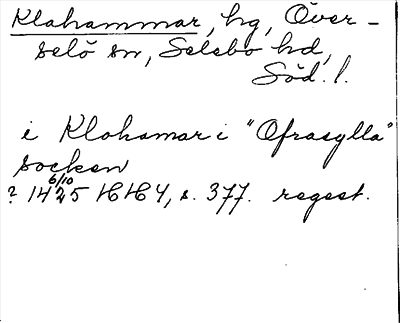 Klahammar, hg, Över-
selö sn, Selebo hd,
Söd. l.
i Klohamar i "Ofrasylla"
socken
? 14 6/10 25 HH 4, s. 377. regest.